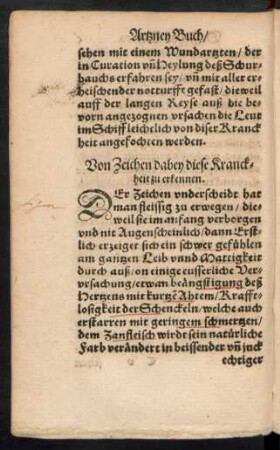 Artzney Buch/
sehen mit einem Wundartzten/ der
in Curation vñ Heylung deß Schur-
bauchs erfahren sey/ vñ mit aller er-
heischender notturfft gefast/ dieweil
auff der langen Reyse auß die be-
vorn angezognen vrsachen die Leut
im Schiff leichelich von diser Kranck
heit angefochten werden.
Von Zeichen dabey diese Kranck-
heit zu erkennen.
DEr Zeichen vnderscheidt hat
man fleissig zu erwegen/ die-
weil sie im anfang verborgen
vnd nit Augenscheinlich/ dann Erst-
lich erzeiget sich ein schwer gefühlen
am gantzen Leib vnnd Mattigkeit
durch auß/ on einige eusserliche Ver-
vrsachung/ etwan beängstigung deß
Hertzens mit kurtzē Ahtem/ Krafft-
losigkeit der Schenckeln/ welche auch
erstarren mit geringem schmertzen/
dem Zanfleisch wirdt sein natürliche
Farb verändert in beissender vñ juck
echtiger